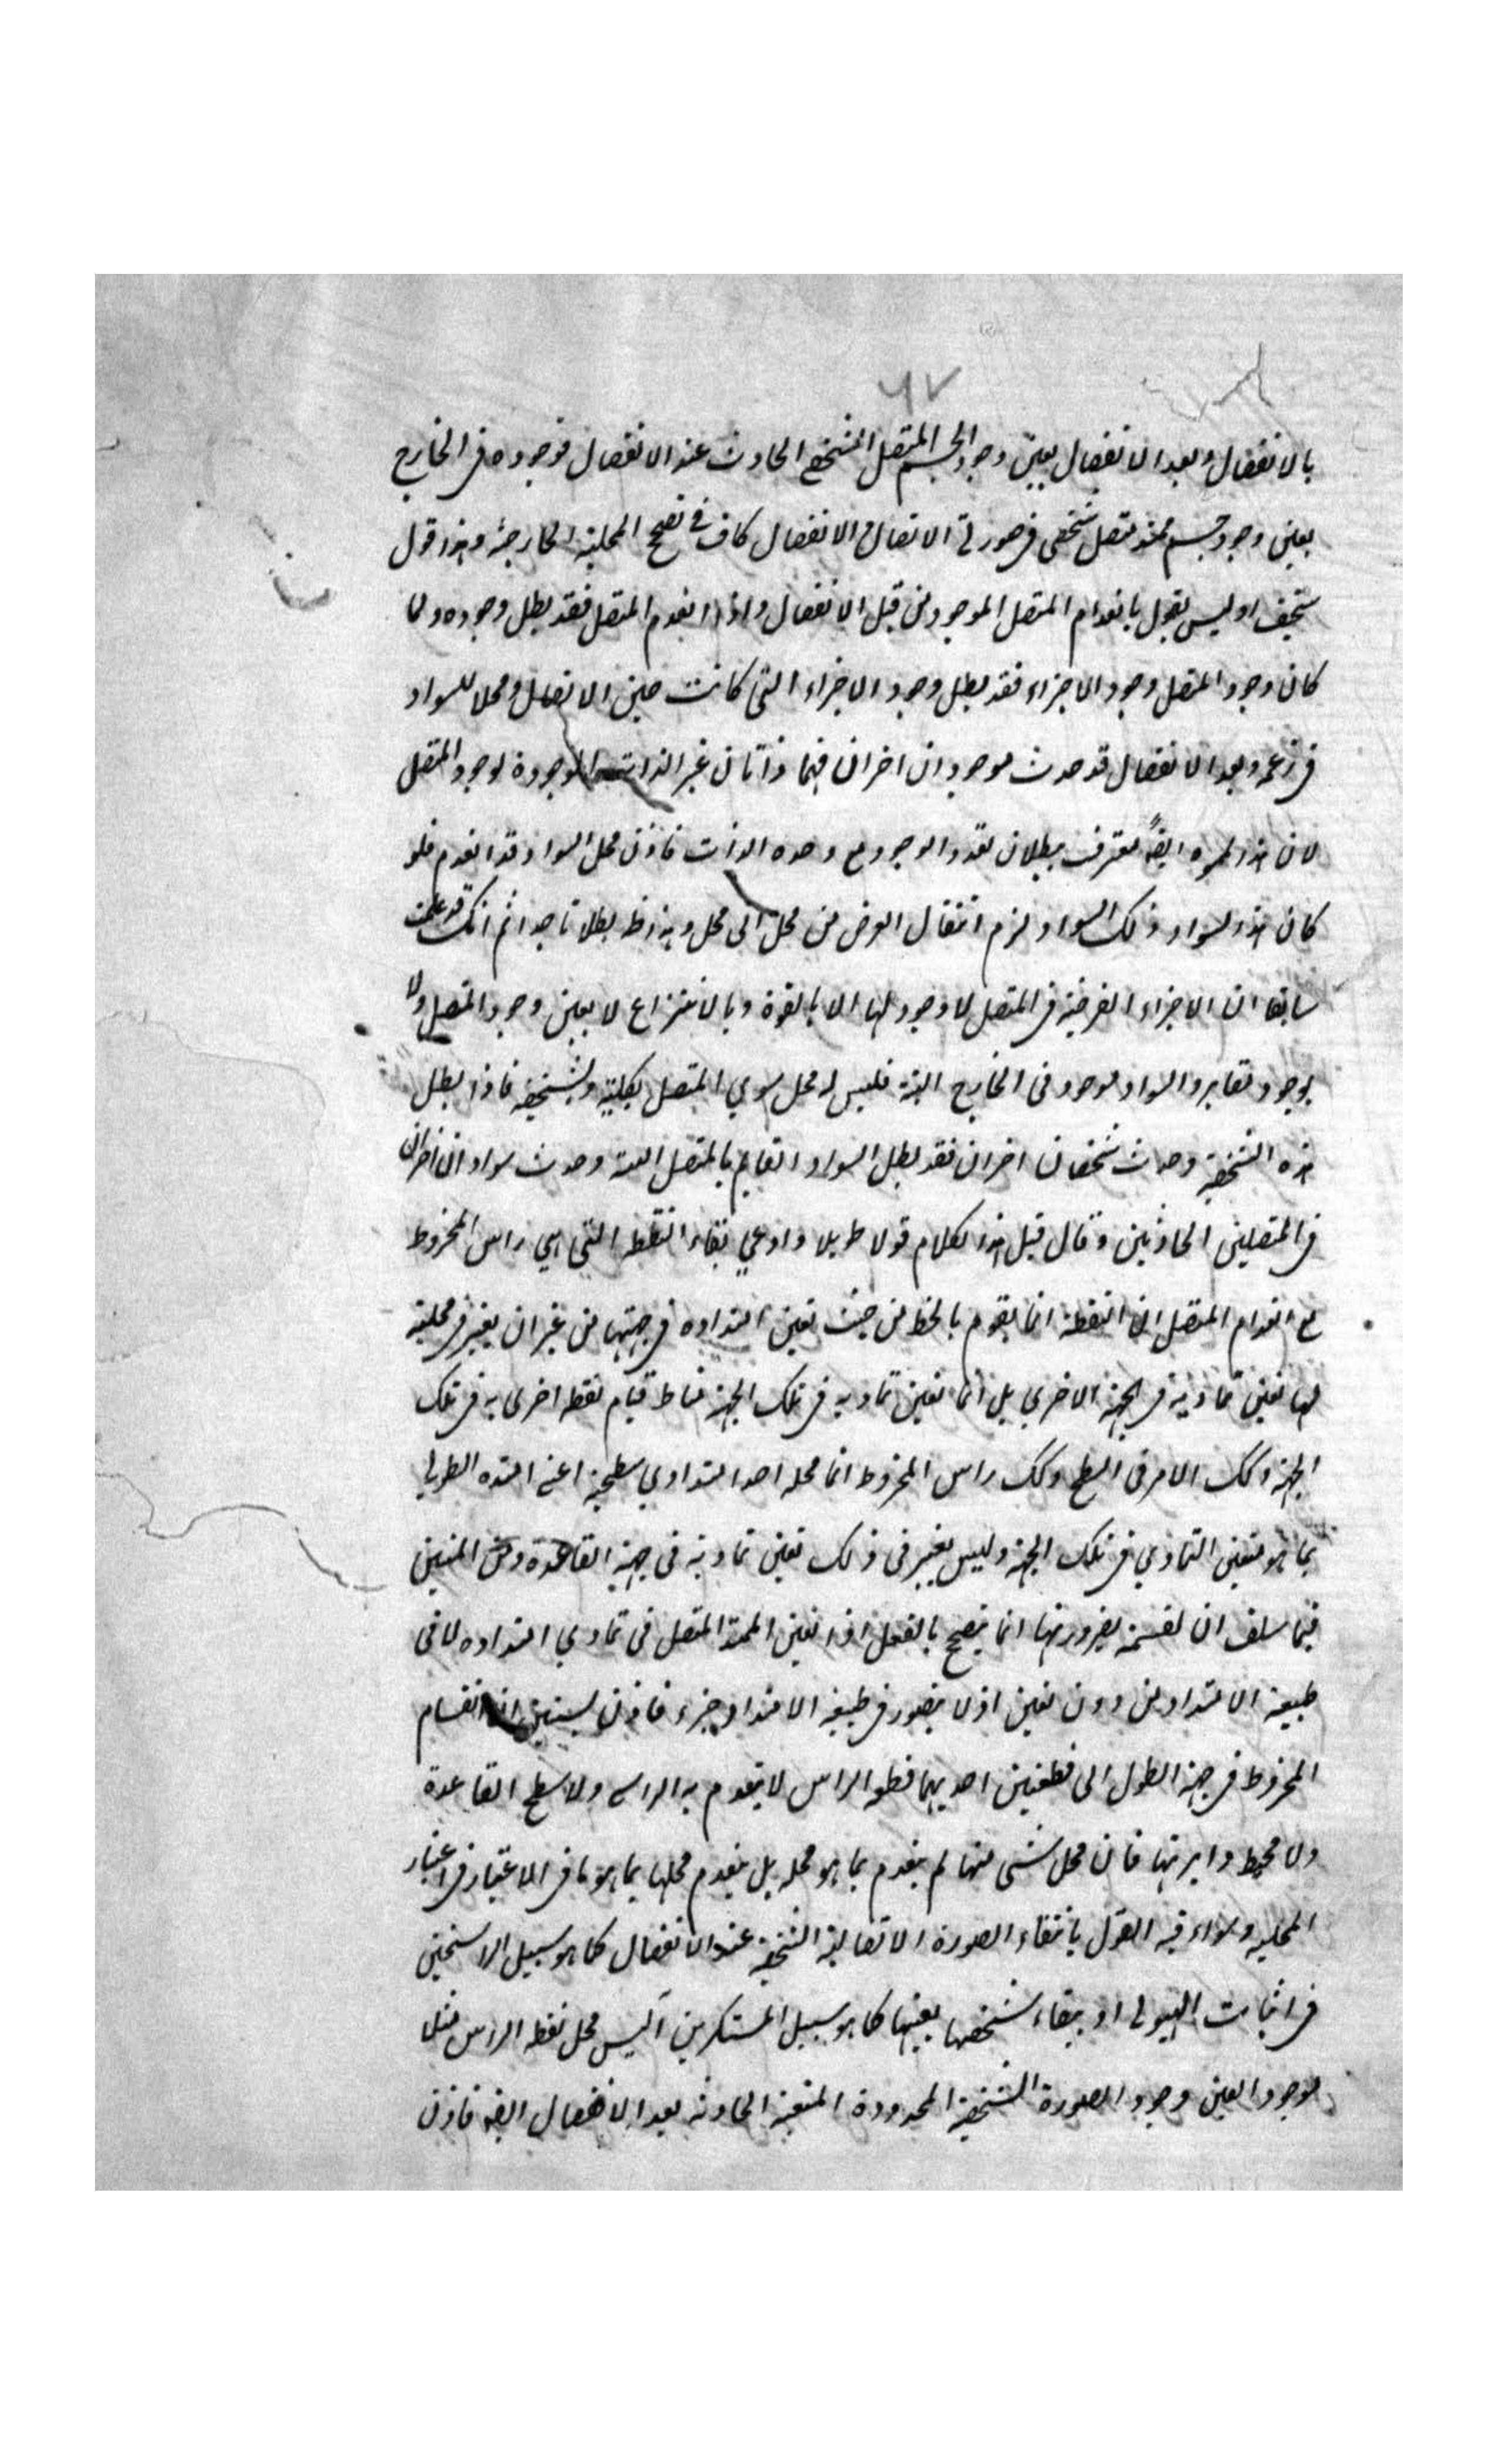 ٦٧
بالانفصال وبعد الانفصال بعين وجود الجسم المتصل المشخص الحادث عند الانفصال فوجوده فى الخارج
بعين وجود جسم ممتد متصل شخصى فى صورتى الاتصال والانفصال كاف فى تصحيح المحلية الخارجية وهذا قول
سخيف اوليس يقول بانعدام المتصل الموجود من قبل الانفصال واذا انعدم المتصل فقد بطل وجوده ولما
كان وجود المتصل وجود الاجزاء فقد بطل وجود الاجزاء التى كانت حين الاتصال ومحلا للسواد
فى زعمه وبعد الانفصال قد حدث موجودان اخران فهما ذاتان غير الذات الموجودة لوجود المتصل
لان هذا ايضاً معترف ببطلان تعدد الوجود مع وحدة الذات فاذن محل السواد قد انعدم فلو
كان هذا السواد ذلك السواد لزم انتقال العرض من محل الى محل وهذا ظ بطلانا جدا ثم انك قد علمت
سابقا ان الاجزاء الفرضية فى المتصل لا وجود لها الا بالقوة وبالانتزاع لا بعين وجود المتصل ولا
بوجود مغاير والسواد موجود فى الخارج البتة فليس له محل سوى المتصل بكليته وبشخصيته فاذا بطل
هذه الشخصية وحدث شخصان اخران فقد بطل السواد القايم بالمتصل البتة وحدث سوادان اخران
فى المتصلين الحادثين وقال قبل هذا الكلام قولا طويلا وادعي بقاء النقطة التى هي راس المخروط
مع انعدام المتصل ان النقطة انما يقوم بالخط من حيث تعين امتداده فى جهتها من غير ان يعتبر فى محليته
لها تعين تماديه فى الجهة الاخري بل انما تعين تماديه فى تلك الجهة مناط قيام نقطة اخرى به فى تلك
الجهة وكك الامر فى السطح وكك راس المخروط انما محله احد امتدادي سطحه اعنى امتداده الطولى
بما هو متعين التمادي فى تلك الجهة وليس يعتبر فى ذلك تعين تماديه فى جهة القاعدة ومن المتبين
فيما سلف ان القسمة بضروبها انما يتصحح بالفعل اذا تعين الممتد المتصل فى تمادي امتداده لا فى
طبيعة الامتداد من دون تعين اذ لا يتصور فى طبيعة الامتداد جزء فاذن يستبين ان انقسام
المخروط فى جهة الطول الى قطعتين احديهما قطعة الراس لا ينعدم به الراس ولا سطح القاعدة
ولا محيط دايرتها فان محل شى منها لم ينعدم بما هو محله بل ينعدم محلها بما هو ما فى الاعتبار فى اعتبار
المحليه وسواء فيه القول بانتفاء الصورة الاتصالية الشخصية عند الانفصال كما هو سبيل الراسخين
فى اثبات الهيولى او ببقاء شخصها بعينها كما هو سبيل المستنكرين أليس محل نقطة الراس مثلا
موجودا بعين وجود الصورة الشخصية المحدودة المتعينة الحادثة بعد الانفصال ايضا فاذن